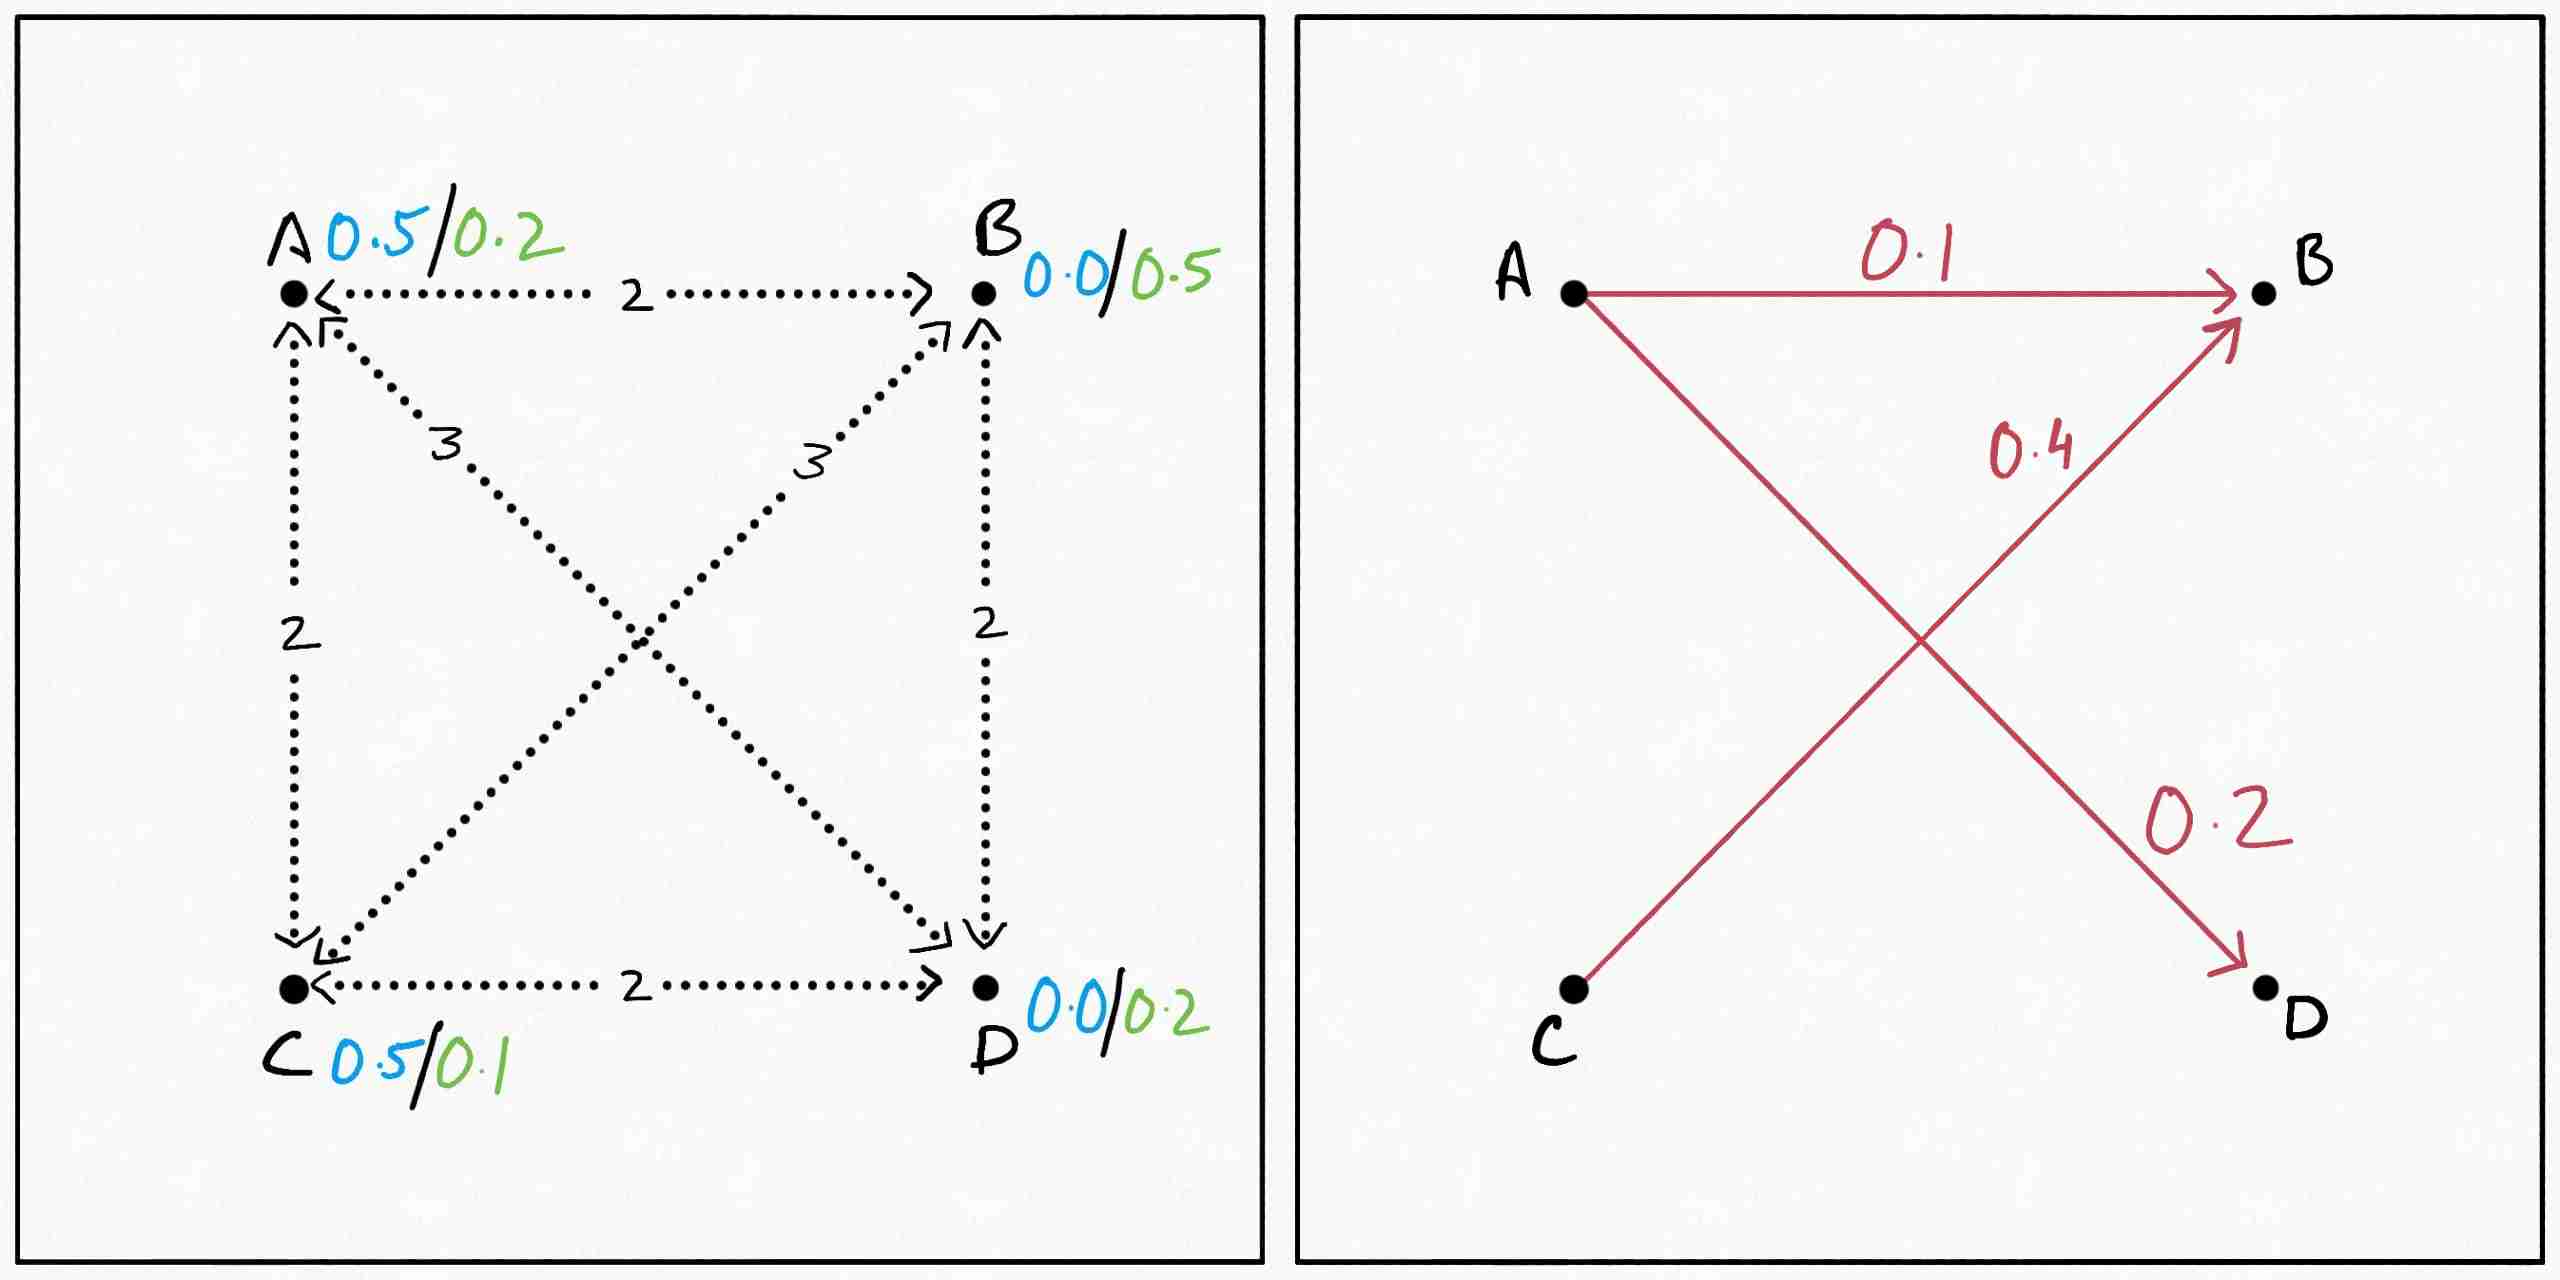 A 0.5/0.2
B
0.0/0.5
2
3
3
2
2
2
C 0.5/0.1
D
0.0/0.2
A
0.1
B
0.4
0.2
C
D